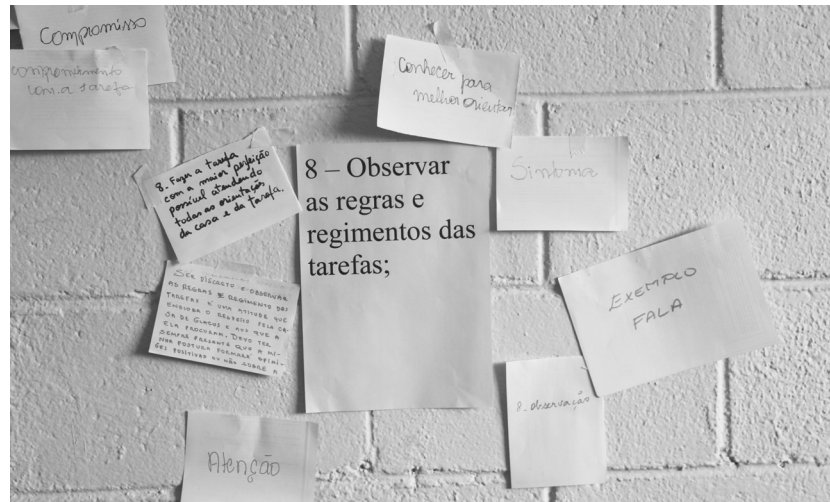 Compromisso
comprometimento
com a tarefa
Conhecer para
melhor orientar
8. Fazer a tarefa
com a maior perfeição
possível atendendo
todas as orientações
da casa e da tarefa.
8 – Observar
as regras e
regimentos das
tarefas;
Sintonia
SER DISCRETO E OBSERVAR
AS REGRAS E REGIMENTO DAS
TAREFAS É UMA ATITUDE QUE
O RESPEITO PELA CA-
SA DE GLACUS E AOS QUE A
ELA PROCURAM. DEVO TER
SEMPRE PRESENTE QUE A MI-
NHA POSTURA FORMARÁ OPINI-
ÕES POSITIVAS OU NÃO SOBRE A
EXEMPLO
FALA
8. observação
Atenção